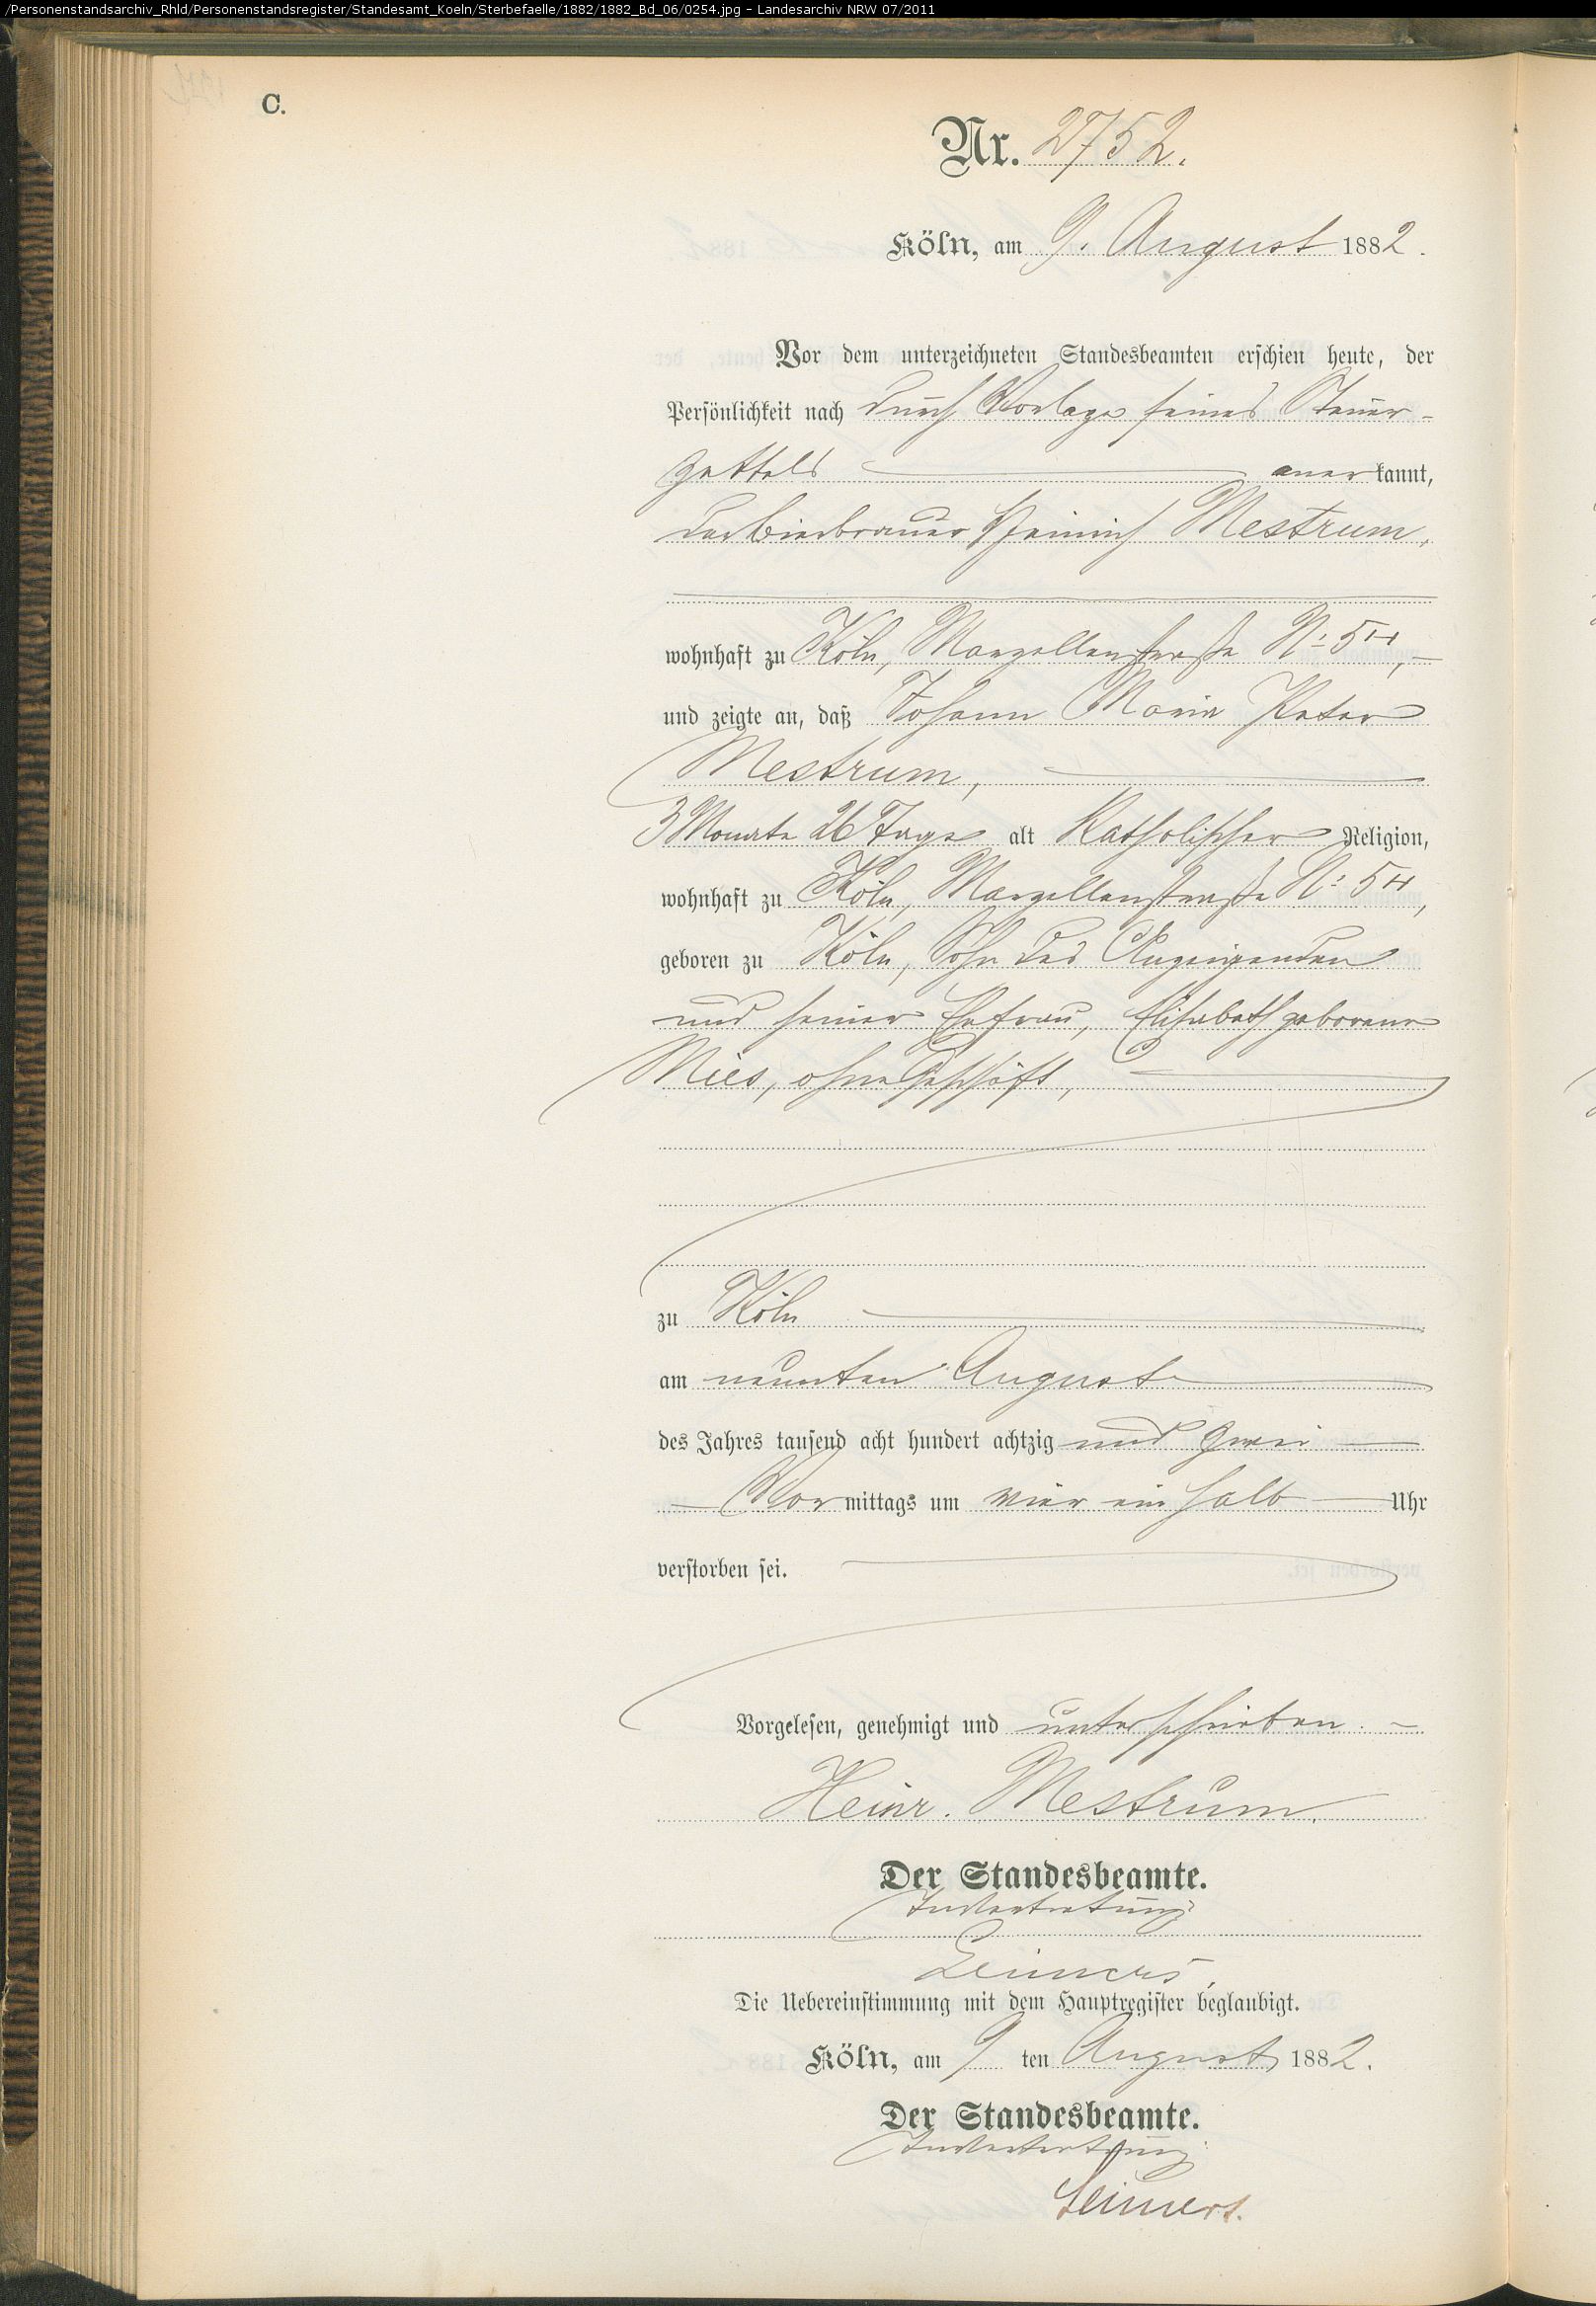 /Personenstandsarchiv_Rhld/Personenstandsregister/Standesamt_Koeln/Sterbefaelle/1882/1882_Bd_06/0254.jpg - Landesarchiv NRW 07/2011
C.
Nr. 2752.
Köln, am 9. August 1882.
Vor dem unterzeichneten Standesbeamten erschien heute, der
Persönlichkeit nach durch Vorlage seines Steuer-
zettels anerkannt,
der Bierbrauer Heinrich Mestrum,
wohnhaft zu Köln, Marzellenstraße No 54,
und zeigte an, daß Johann Maria Peter
Mestrum,
3 Monate 26 Tage alt Katholischer Religion,
wohnhaft zu Köln, Marzellenstraße No 54,
geboren zu Köln, Sohn des Anzeigenden
und seiner Ehefrau, Elisabeth geborene
Mies, ohne Geschäft,
zu Köln
am neunten August
des Jahres tausend acht hundert achtzig und zwei
Vormittags um vier ein halb Uhr
verstorben sei.
Vorgelesen, genehmigt und unterschrieben.
Heinr. Mestrum
Der Standesbeamte.
In Vertretung
Leimers.
Die Uebereinstimmung mit dem Hauptregister beglaubigt.
Köln, am 9 ten August 1882.
Der Standesbeamte.
In Vertretung
Leimers.